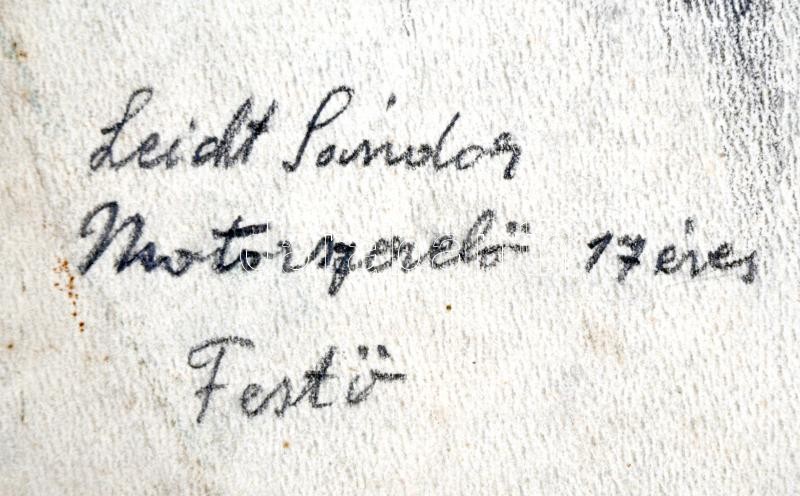 Leicht Sándor
Motorszerelő 17 éves
Festő